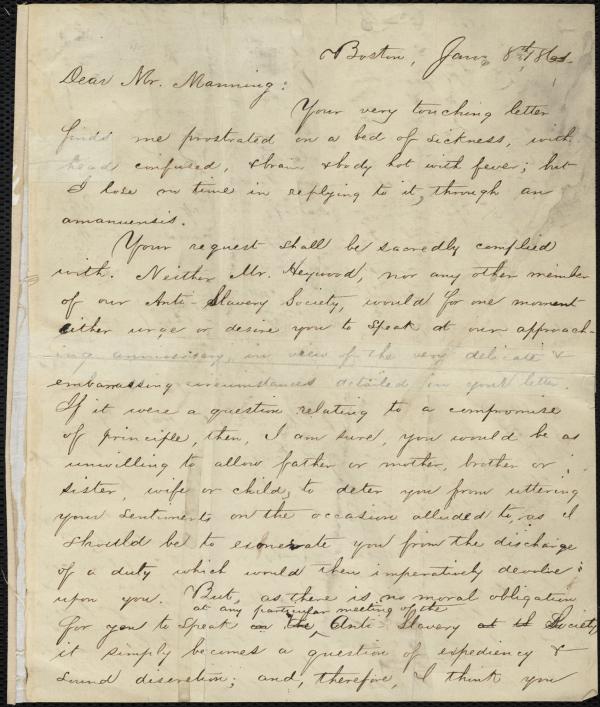 Boston, Jan. 8th, 186
Dear Mr. Manning:
Your very touching letter
finds me prostrated on a bed of sickness, with
head confused, & brain & body hot with fever; but
I lose no time in replying to it, through an
amanuensis.
Your request shall be sacredly complied
with. Neither Mr. Heywood, nor any other member
of our Anti-Slavery Society, would for one moment
either urge or desire you to speak at our approach-
ing anniversary, in view of the very delicate &
embarrassing circumstances detailed in your letter.
If it were a question relating to a compromise
of principle, then, I am sure, you would be as
unwilling to allow father or mother, brother or
sister, wife or child, to deter you from uttering
your sentiments on the occasion alluded to, as I
should be to exonerate you from the discharge
of a duty which would then imperatively devolve
upon you. But, as there is no moral obligation
at any particular meeting of the
for you to speak on the Anti-Slavery at the Society
it simply becomes a question of expediency &
sound discretion; and, therefore, I think you